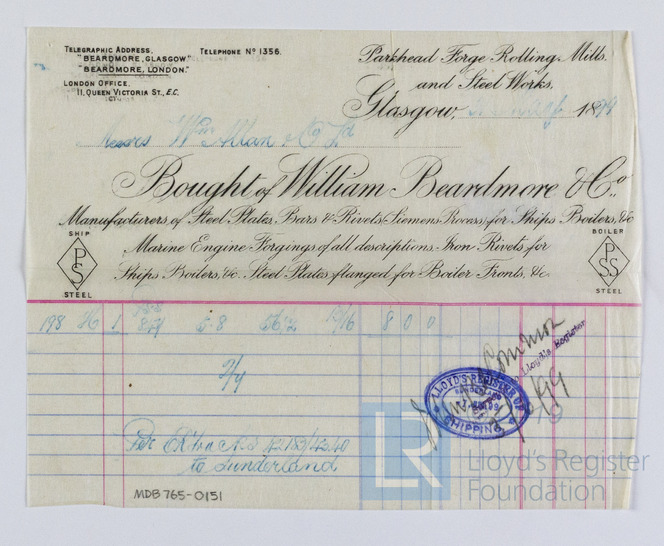 TELEGRAPHIC ADDRESS,
"BEARDMORE, GLASGOW"
"BEARDMORE, LONDON."
TELEPHONE Nº 1356.
LONDON OFFICE,
11, QUEEN VICTORIA ST., E.C.
Parkhead Forge Rolling Mills
and Steel Works,
Glasgow, 1899
Messrs Wm Allan & Co Ld
Bought of William Beardmore & Co.
Manufacturers of Steel Plates, Bars & Rivets (Siemens Process) for Ships Boilers, &c
Marine Engine Forgings of all descriptions. Iron Rivets for
Ships Boilers, &c. Steel Plates flanged for Boiler Fronts, &c.
SHIP
PS
STEEL
BOILER
PSS
STEEL
198 1 5.8 8 0 0
Common
Lloyd's Register
99
LLOYD'S REGISTER OF
SHIPPING
Per
to Sunderland
MDB 765-0151
LR
Lloyd's Register
Foundation